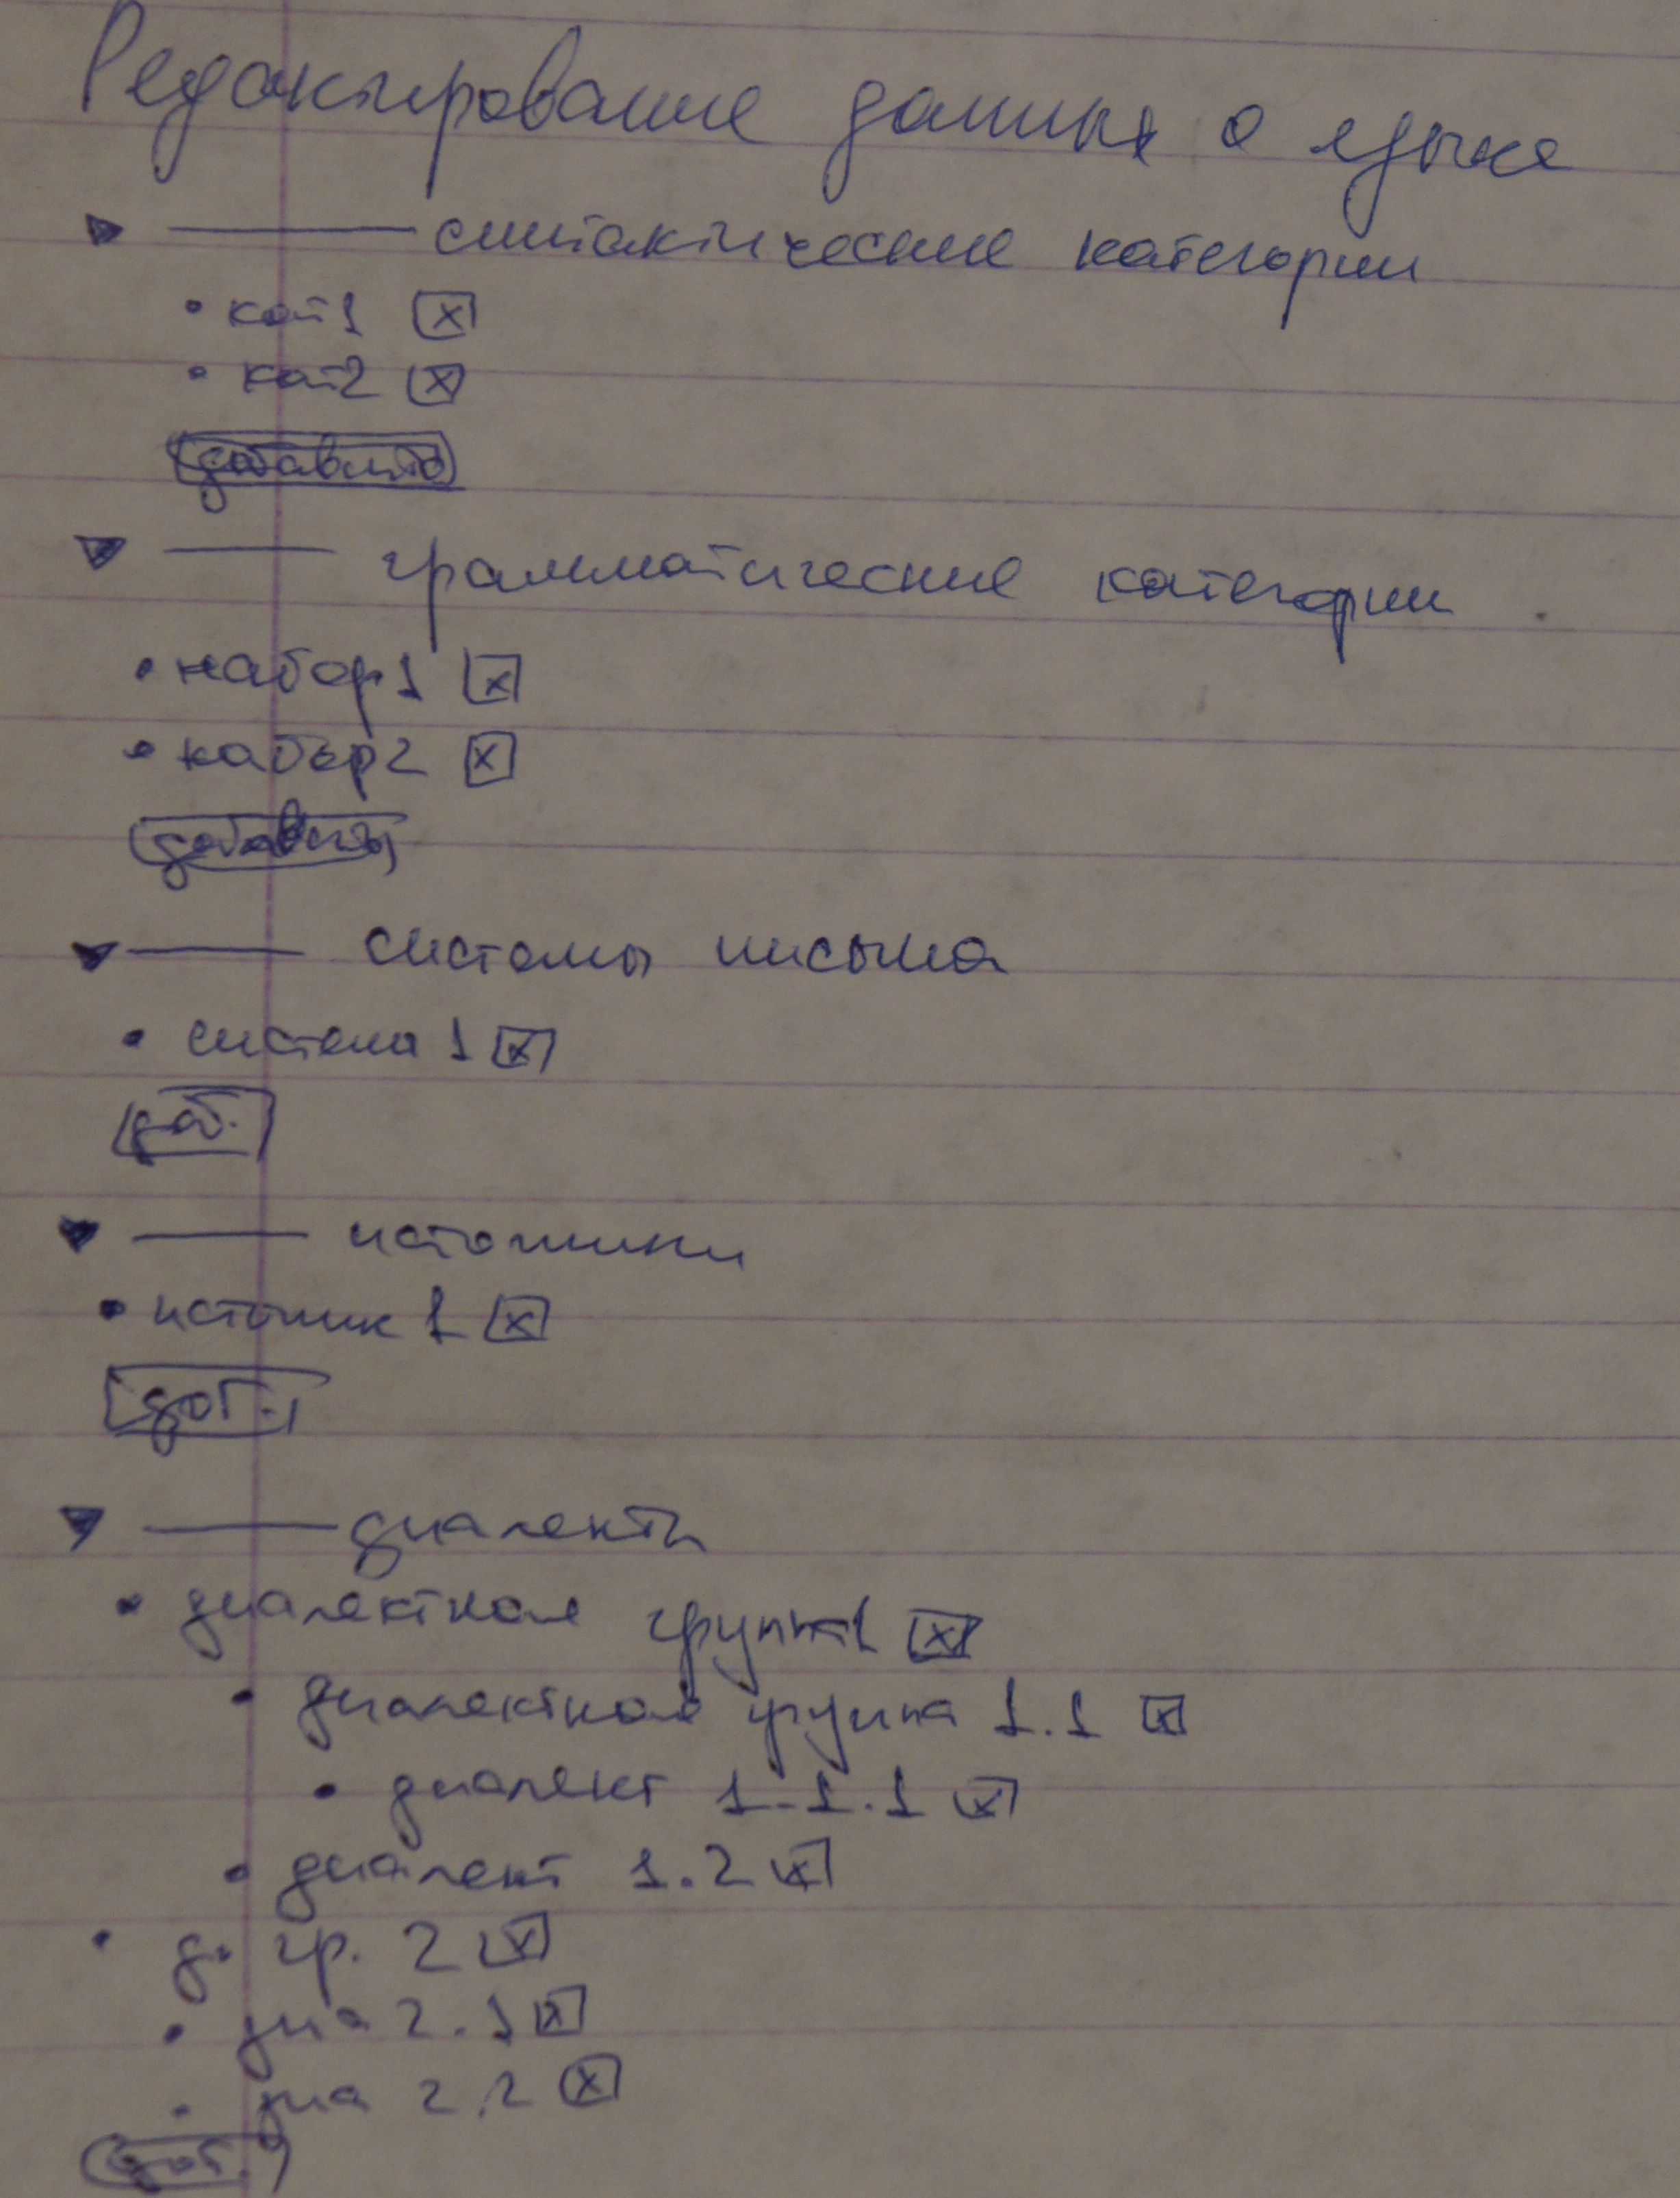 Редактирование данных о языке
▼ — синтактические категории
• кат1 [x]
• кат2 [x]
[добавить]
▼ — грамматические категории
• набор1 [x]
• набор2 [x]
[добавить]
▼ — системы письма
• система 1 [x]
[доб.]
▼ — источники
• источник 1 [x]
[доб.]
▼ — диалекты
• диалектная группа1 [x]
• диалектная группа 1.1 [x]
• диалект 1.1.1 [x]
• диалект 1.2 [x]
• д. гр. 2 [x]
• диа 2.1 [x]
• диа 2.2 [x]
[доб.]